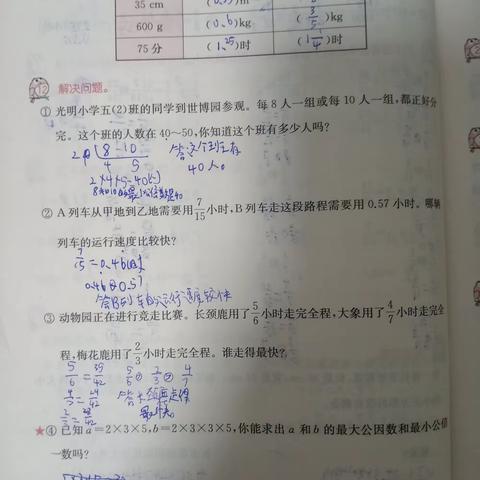 35 cm (0.35)m
600 g (0.6)kg (3/5)kg
75分 (1.25)时 (1 1/4)时
12 解决问题。
① 光明小学五(2)班的同学到世博园参观。每8人一组或每10人一组,都正好分
完。这个班的人数在40~50,你知道这个班有多少人吗?
2 8 10 答:这个班有
4 5 40人。
2×4×5=40(人)
② A列车从甲地到乙地需要用7/15小时,B列车走这段路程需要用0.57小时。哪辆
列车的运行速度比较快?
7/15=0.46
③ 动物园正在进行竞走比赛。长颈鹿用了5/6小时走完全程,大象用了4/7小时走完全
程,梅花鹿用了2/3小时走完全程。谁走得最快?
5/6=35/42 5/6 2/3 4/7
4/7=24/42
2/3=28/42
★④ 已知a=2×3×5,b=2×3×3×5,你能求出a和b的最大公因数和最小公倍
数吗?